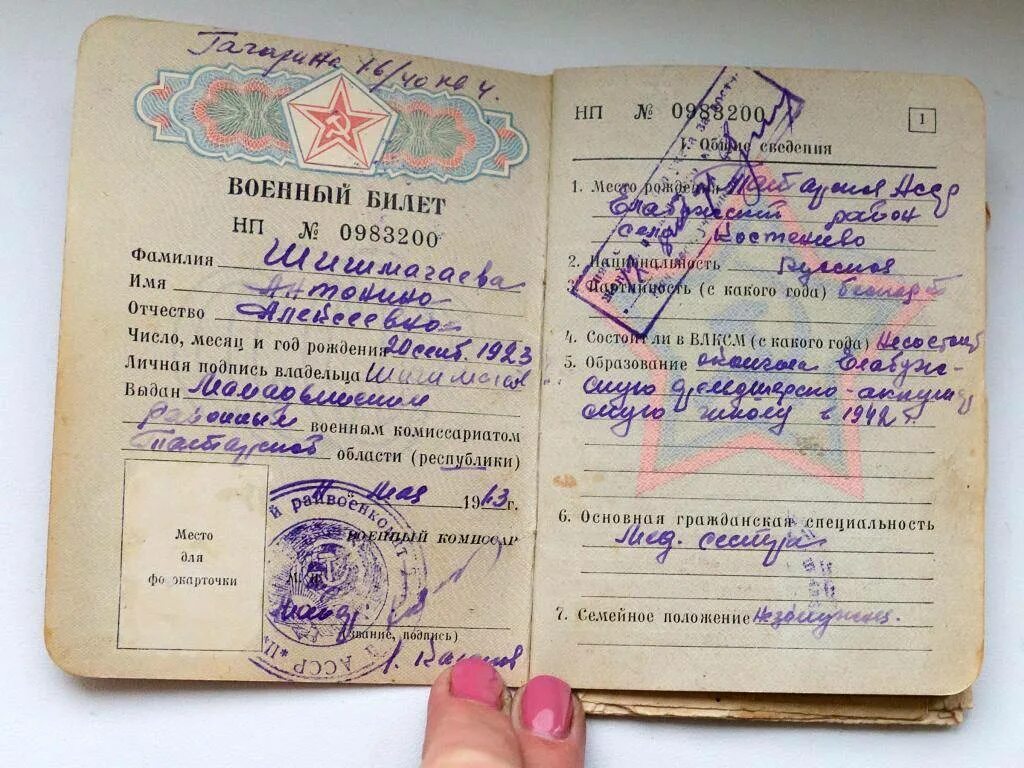 Гагарина 16/40 кв 4.
ВОЕННЫЙ БИЛЕТ
НП № 0983200
Фамилия Шишмагаева
Имя Антонина
Отчество Алексеевна
Число, месяц и год рождения 20 сент. 1923
Личная подпись владельца
Выдан Мамадышским
районным военным комиссариатом
Татарской области (республики)
11 мая 1963 г.
Место
для
фотокарточки
й райвоенкомат
ВОЕННЫЙ КОМИССАР
(звание, подпись)
АССР
НП № 0983200
1
I. Общие сведения
1. Место рождения Татарская АССР
Елабужский район
село Костенеево
2. Национальность Русская
3. Партийность (с какого года) беспарт
4. Состоял ли в ВЛКСМ (с какого года) Несостоит
5. Образование окончила Елабуж-
скую фельдшерско-акушер
скую школу в 1942 г.
6. Основная гражданская специальность
Мед. сестра
7. Семейное положение Незамужняя.